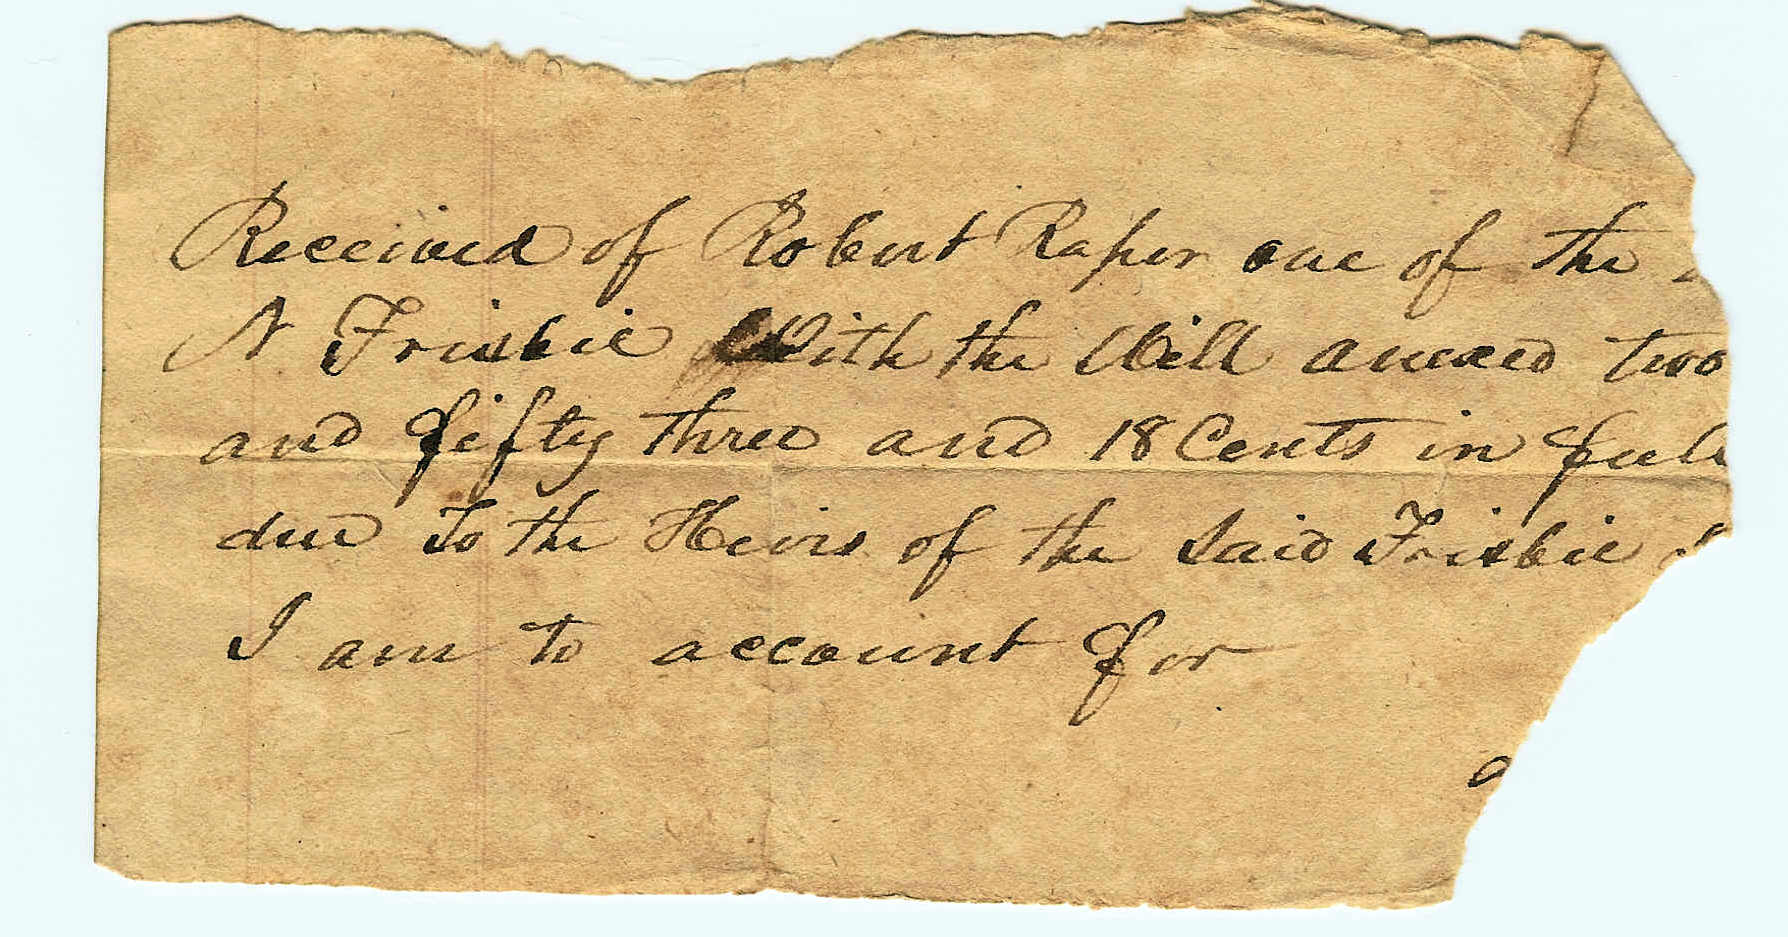 Received of Robert Raper one of the
N Frisbie With the Will anexed two
and fifty three and 18 Cents in full
due To the Heirs of the Said Frisbie
I am to account for